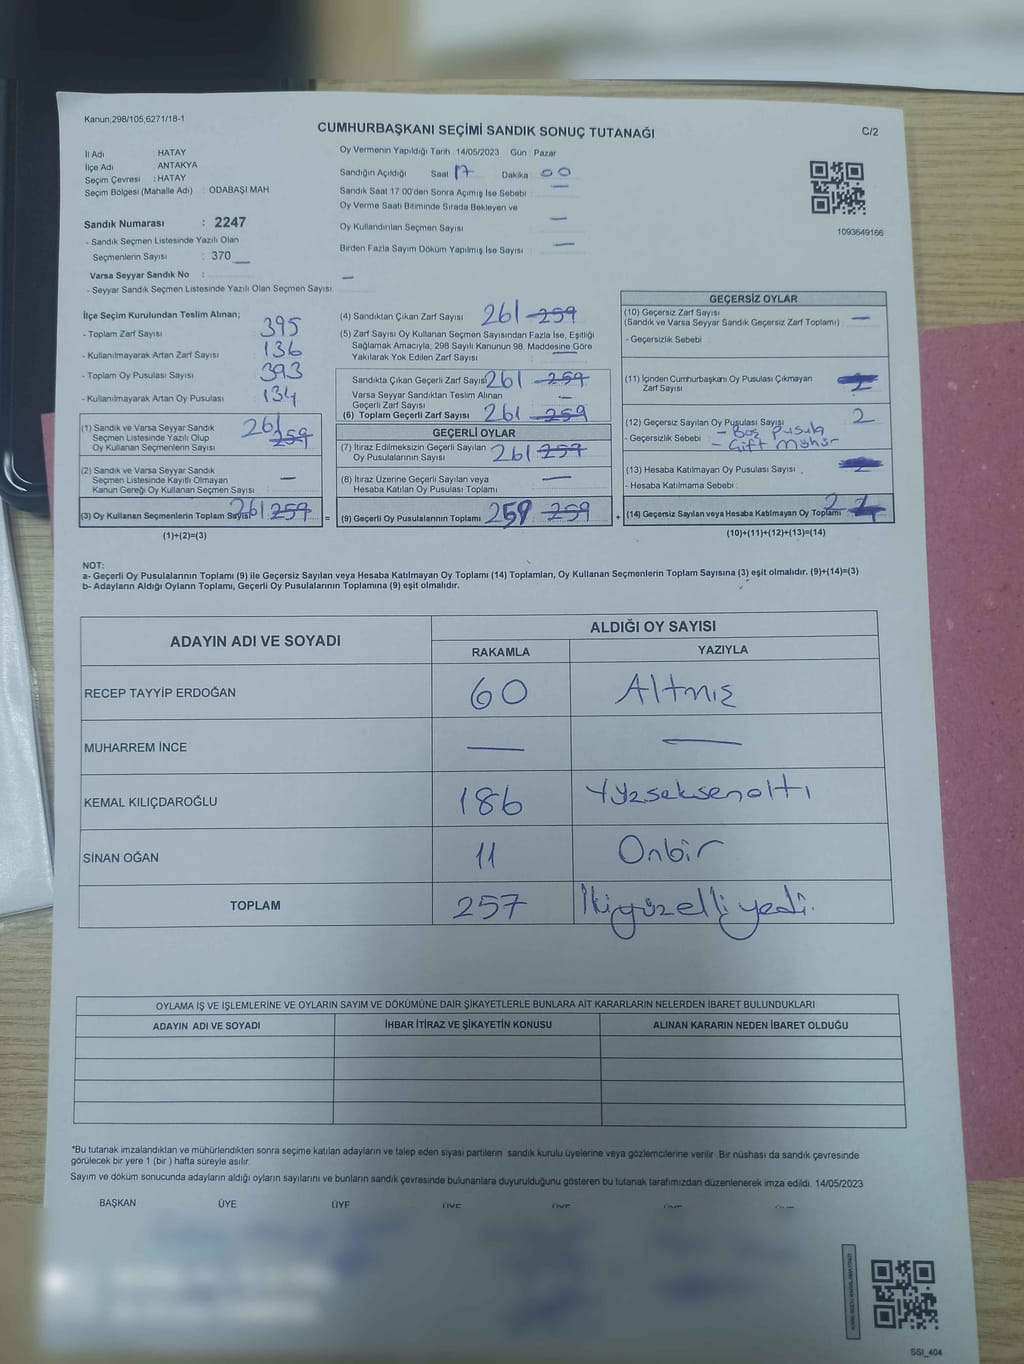 Kanun,298/105,6271/18-1
CUMHURBAŞKANI SEÇİMİ SANDIK SONUÇ TUTANAĞI
C/2
İl Adı HATAY
İlçe Adı ANTAKYA
Seçim Çevresi : HATAY
Seçim Bölgesi (Mahalle Adı) : ODABAŞI MAH
Sandık Numarası : 2247
- Sandık Seçmen Listesinde Yazılı Olan
Seçmenlerin Sayısı : 370
Varsa Seyyar Sandık No :
- Seyyar Sandık Seçmen Listesinde Yazılı Olan Seçmen Sayısı: —
Oy Vermenin Yapıldığı Tarih 14/05/2023 Gün Pazar
Sandığın Açıldığı Saat 17 Dakika 00
Sandık Saat 17 00'den Sonra Açımış İse Sebebi : —
Oy Verme Saati Bitiminde Sırada Bekleyen ve
Oy Kullandırılan Seçmen Sayısı : —
Birden Fazla Sayım Döküm Yapılmış İse Sayısı : —
1093649166
İlçe Seçim Kurulundan Teslim Alınan;
- Toplam Zarf Sayısı 395
- Kullanılmayarak Artan Zarf Sayısı 136
- Toplam Oy Pusulası Sayısı 393
- Kullanılmayarak Artan Oy Pusulası 134
(1) Sandık ve Varsa Seyyar Sandık
Seçmen Listesinde Yazılı Olup
Oy Kullanan Seçmenlerin Sayısı 261 259
(2) Sandık ve Varsa Seyyar Sandık
Seçmen Listesinde Kayıtlı Olmayan
Kanun Gereği Oy Kullanan Seçmen Sayısı —
(3) Oy Kullanan Seçmenlerin Toplam Sayısı 261 259
(1)+(2)=(3)
(4) Sandıktan Çıkan Zarf Sayısı 261 259
(5) Zarf Sayısı Oy Kullanan Seçmen Sayısından Fazla İse, Eşitliği
Sağlamak Amacıyla, 298 Sayılı Kanunun 98. Maddesine Göre
Yakılarak Yok Edilen Zarf Sayısı —
Sandıkta Çıkan Geçerli Zarf Sayısı 261 259
Varsa Seyyar Sandıktan Teslim Alınan
Geçerli Zarf Sayısı —
(6) Toplam Geçerli Zarf Sayısı 261 259
GEÇERLİ OYLAR
(7) İtiraz Edilmeksizin Geçerli Sayılan
Oy Pusulalarının Sayısı 261 259
(8) İtiraz Üzerine Geçerli Sayılan veya
Hesaba Katılan Oy Pusulası Toplamı —
= (9) Geçerli Oy Pusulalarının Toplamı 259 259
GEÇERSİZ OYLAR
(10) Geçersiz Zarf Sayısı
(Sandık ve Varsa Seyyar Sandık Geçersiz Zarf Toplamı) : —
- Geçersizlik Sebebi :
(11) İçinden Cumhurbaşkanı Oy Pusulası Çıkmayan
Zarf Sayısı 2
(12) Geçersiz Sayılan Oy Pusulası Sayısı 2
- Geçersizlik Sebebi : - Boş Pusula
- Çift Mühür
(13) Hesaba Katılmayan Oy Pusulası Sayısı : 2
- Hesaba Katılmama Sebebi :
+ (14) Geçersiz Sayılan veya Hesaba Katılmayan Oy Toplamı 2
(10)+(11)+(12)+(13)=(14)
NOT:
a- Geçerli Oy Pusulalarının Toplamı (9) ile Geçersiz Sayılan veya Hesaba Katılmayan Oy Toplamı (14) Toplamları, Oy Kullanan Seçmenlerin Toplam Sayısına (3) eşit olmalıdır. (9)+(14)=(3)
b- Adayların Aldığı Oyların Toplamı, Geçerli Oy Pusulalarının Toplamına (9) eşit olmalıdır.
ADAYIN ADI VE SOYADI
ALDIĞI OY SAYISI
RAKAMLA YAZIYLA
RECEP TAYYİP ERDOĞAN 60 Altmış
MUHARREM İNCE — —
KEMAL KILIÇDAROĞLU 186 Yüzseksenaltı
SİNAN OĞAN 11 Onbir
TOPLAM 257 İkiyüzelliyedi.
OYLAMA İŞ VE İŞLEMLERİNE VE OYLARIN SAYIM VE DÖKÜMÜNE DAİR ŞİKAYETLERLE BUNLARA AİT KARARLARIN NELERDEN İBARET BULUNDUKLARI
ADAYIN ADI VE SOYADI İHBAR İTİRAZ VE ŞİKAYETİN KONUSU ALINAN KARARIN NEDEN İBARET OLDUĞU
*Bu tutanak imzalandıktan ve mühürlendikten sonra seçime katılan adayların ve talep eden siyasi partilerin sandık kurulu üyelerine veya gözlemcilerine verilir. Bir nüshası da sandık çevresinde
görülecek bir yere 1 (bir ) hafta süreyle asılır.
Sayım ve döküm sonucunda adayların aldığı oyların sayılarını ve bunların sandık çevresinde bulunanlara duyurulduğunu gösteren bu tutanak tarafımızdan düzenlenerek imza edildi. 14/05/2023
BAŞKAN ÜYE ÜYE ÜYE ÜYE ÜYE ÜYE
SSI_404